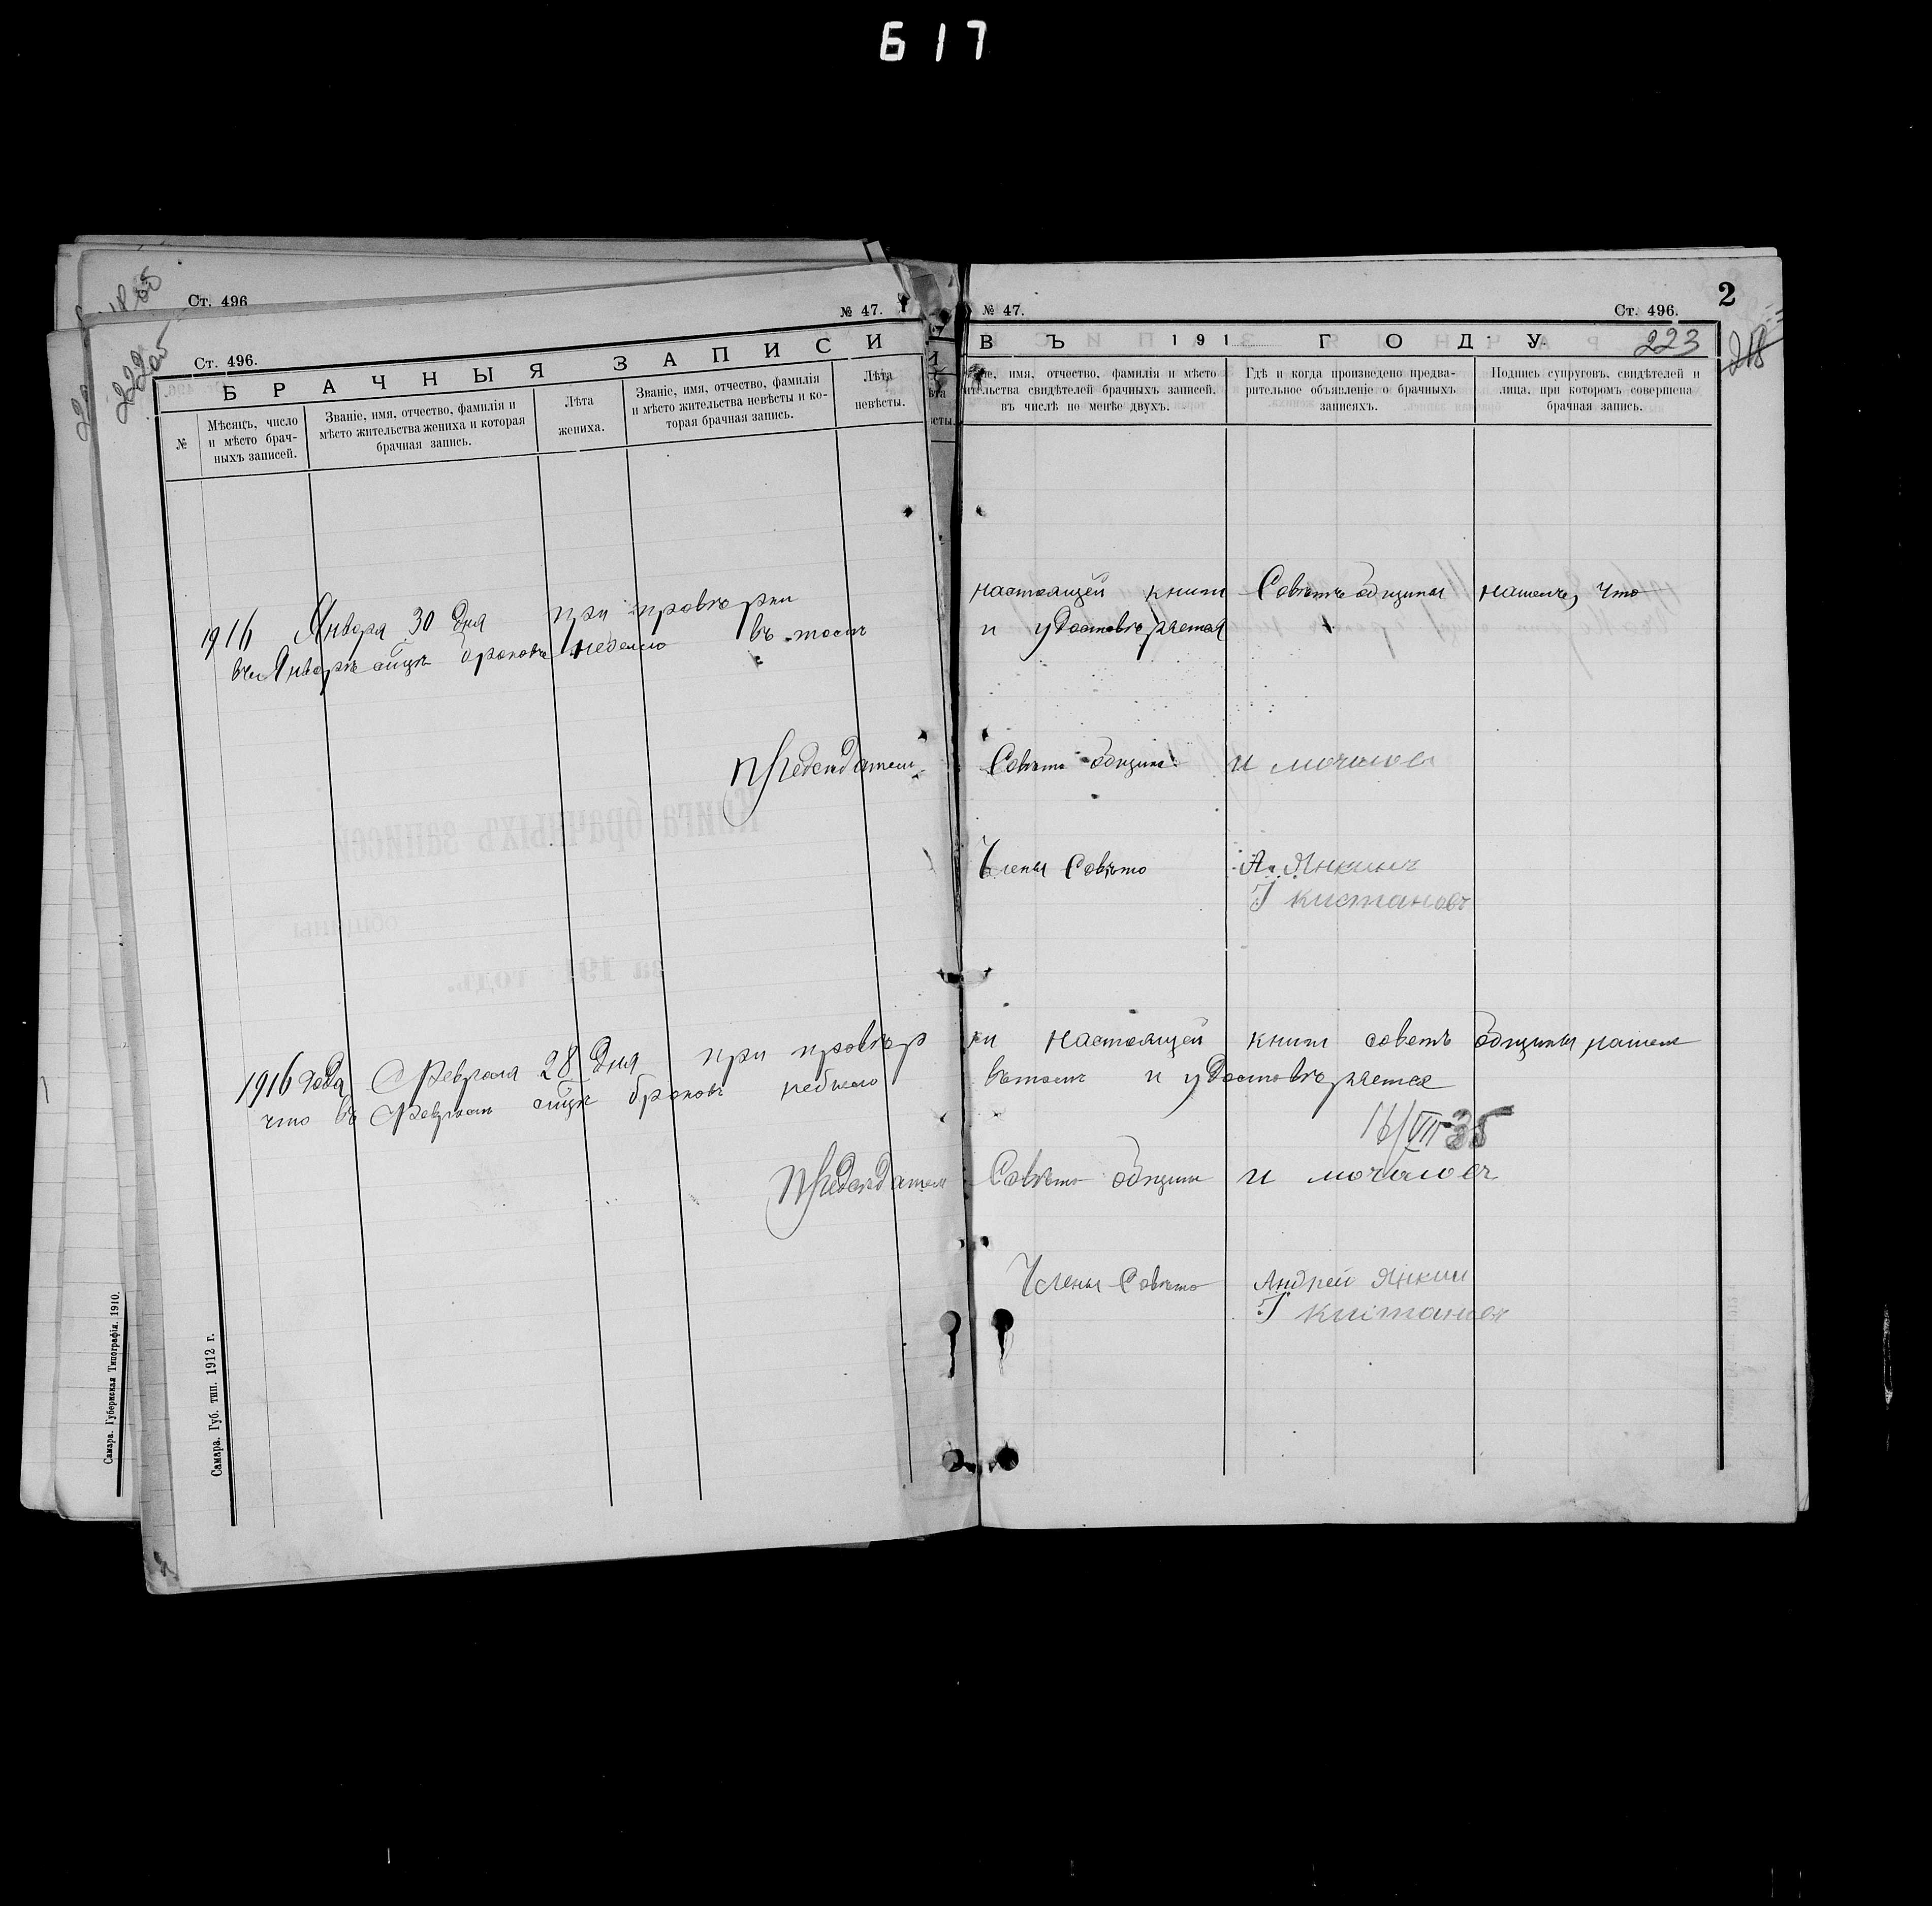 617
Ст. 496
Ст. 496.
№ 47.
БРАЧНЫЯ ЗАПИСИ
№
Мѣсяцъ, число
и мѣсто брач-
ныхъ записей.
Званіе, имя, отчество, фамилія и
мѣсто жительства жениха и которая
брачная запись.
Лѣта
жениха.
Званіе, имя, отчество, фамилія
и мѣсто жительства невѣсты и ко-
торая брачная запись.
Лѣта
невѣсты.
№ 47.
Ст. 496.
2
ВЪ 191 ГОДУ
223
218
имя, отчество, фамилія и мѣсто
жительства свидѣтелей брачныхъ записей.
въ числѣ не менѣе двухъ.
Гдѣ и когда произведено предва-
рительное объявленіе о брачныхъ
записяхъ.
Подпись супруговъ, свидѣтелей и
лица, при которомъ совершена
брачная запись.
1916 Января 30 дня при провѣрки настоящей книги Совѣтъ общины нашелъ, что
въ Январѣ браковъ небыло въ томъ и удостовѣряется
Предсѣдатель Совѣта общины И Мочалов
Члены Совѣта А. Янкинъ
Кистановъ
1916 года Февраля 28 дня при провѣрки настоящей книги советъ общины нашелъ
что въ Февралѣ браковъ небыло вътомъ и удостовѣряется
16/VII-35
Предсѣдатель Совѣта общины И Мочаловъ
Члены Совѣта Андрей Янкин
Кистановъ
Самара. Губ. тип. 1912 г.
Самара. Губернская Типографія. 1910.